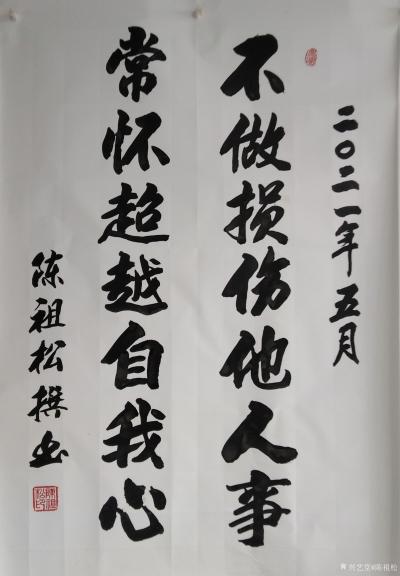 二〇二一年五月
不做损伤他人事
常怀超越自我心
陈祖松撰书
兴艺堂@陈祖松